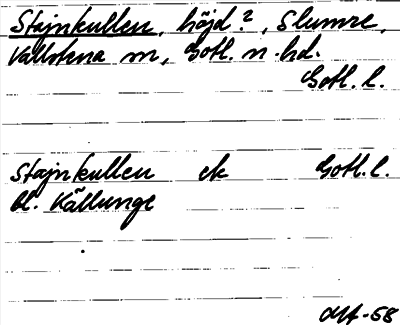 Stajnkullen, höjd?, Slumre,
Vallstena sn, Gotl. n. hd.
Gotl. l.
Stajnkullen ek Gotl. l.
bl. Källunge
-58